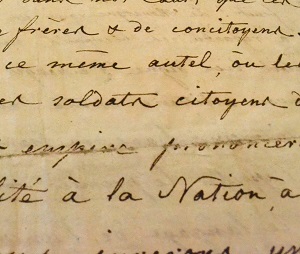 dans nos que ces
frères & de concitoyens
ce même autel, où le
soldats citoyens d
empire prononcer
lité à la Nation, à
un